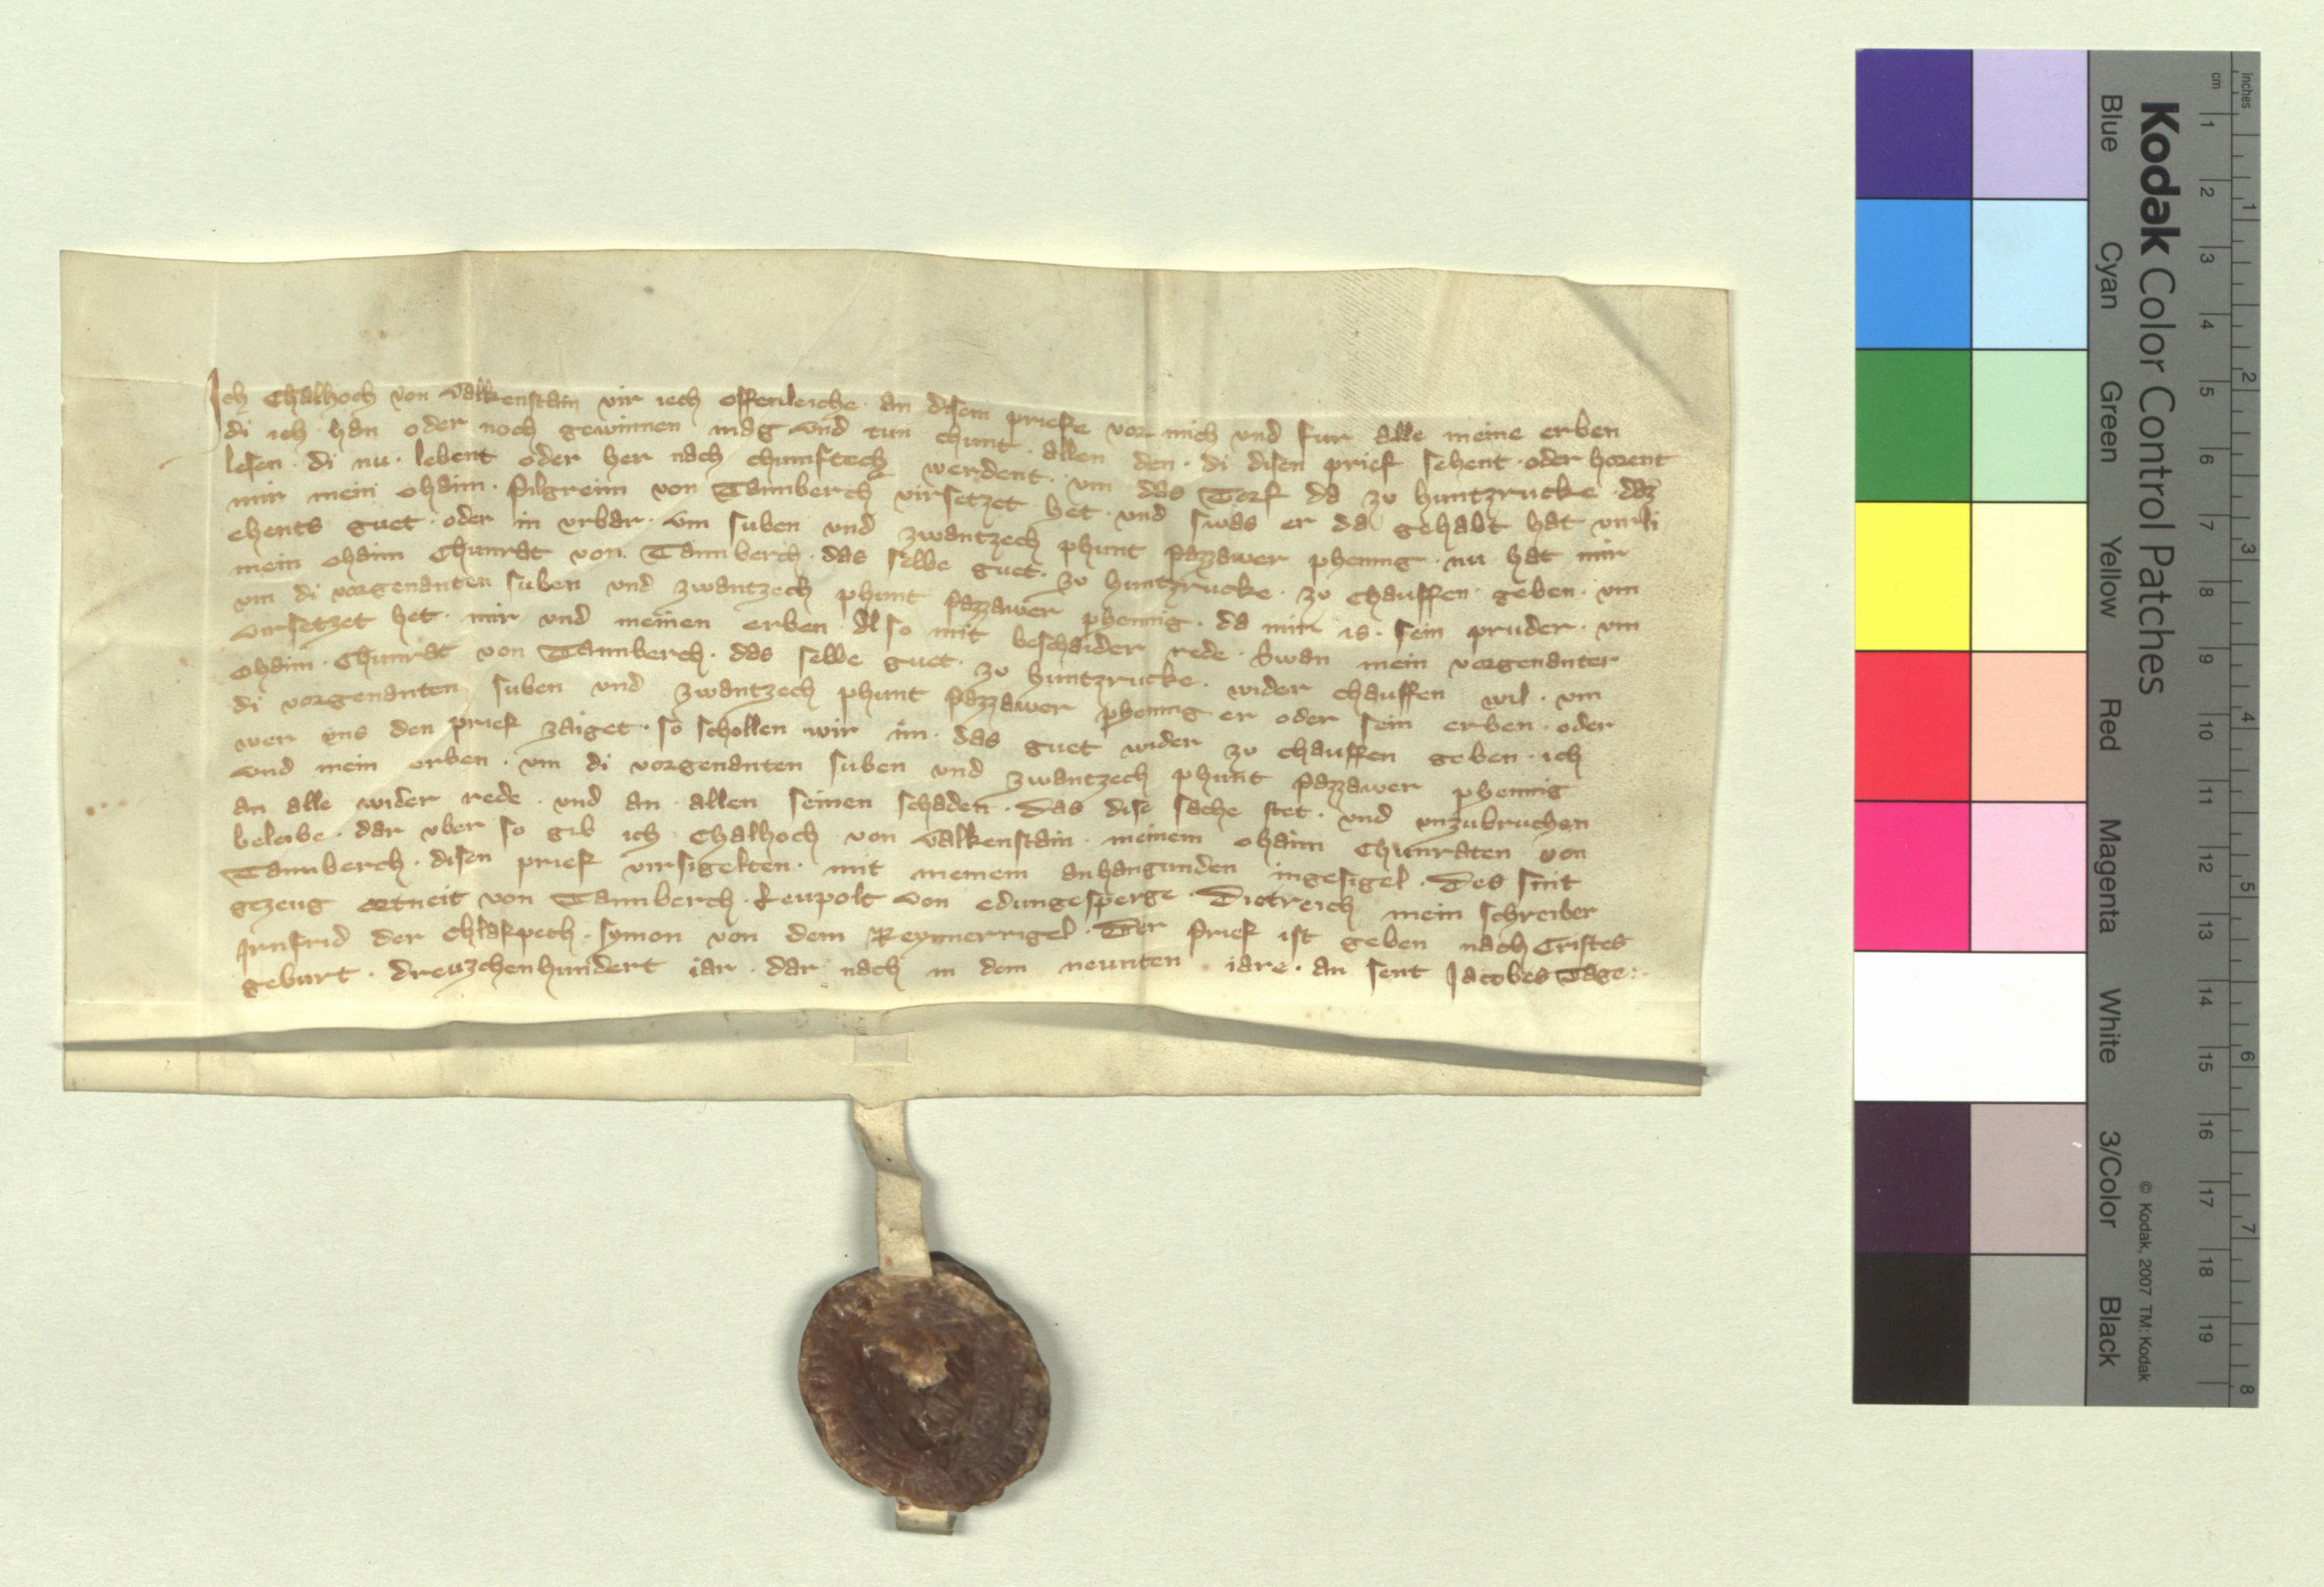 Ich Chalhoch von Valkenstain vir iech offenleiche · an disem priefe vor mich vnd fur alle meine erben
di ich han oder noch gewinnen mag vnd tun chunt · allen den · di disen prief sehent · oder horent
lesen · di nu · lebent oder her nach chumftech werdent · vm das Torf da zv huntzrucke · daz
mir mein ohaim · Pilgreim von Tannberch virsetzet het · vnd swas er da gehabt hat virli
ehents guet · oder in vrbar · vm suben vnd zwantzech phunt Pazzawer phennig · nu hat mir
mein ohaim Chunrat von Tannberch · das selbe guet · zv huntzrucke · zv chauffen geben · vm
vm di vorgenanten suben vnd zwantzech phunt Pazzawer phennig · da mir is · sein pruder · vm
virsetzet het · mir vnd meinen erben · Also mit beschaider rede · Swan mein vorgenanter
ohaim · Chunrat von Tannberch · das selbe guet · zv huntzrucke · wider chauffen wil · vm
di vorgenanten suben vnd zwantzech phunt Pazzawer phennig er oder sein erben · oder
wer vns den prief zaiget · so schollen wir im · das guet wider zv chauffen geben · ich
vnd mein erben · vm di vorgenanten suben vnd zwantzech phunt Pazzawer phennig
an alle wider rede · vnd an allen seinen schaden · Das dise sache stet · vnd vnzubruchen
beleibe · dar vber so gib ich Chalhoch von Valkenstain · meinem ohaim Chunraten von
Tannberch · disen prief virsigelten · mit meinem anhangunden ingesigel · Des sint
gezeug ortneit von Tannberch · Leupolt von edungesperge · Dietreich mein schreiber
Irnfrid der Chlafpech · Symon von dem Reymerrigel · Der prief ist geben nach Cristes
geburt · dreuzchenhundert iar · dar nach in dem neunten iare · an sent Jacobes Tage :
Kodak Color Control Patches
Blue Cyan Green Yellow Red Magenta White 3/Color Black
© Kodak, 2007 TM: Kodak
cm 1 2 3 4 5 6 7 8 9 10 11 12 13 14 15 16 17 18 19
inches 1 2 3 4 5 6 7 8